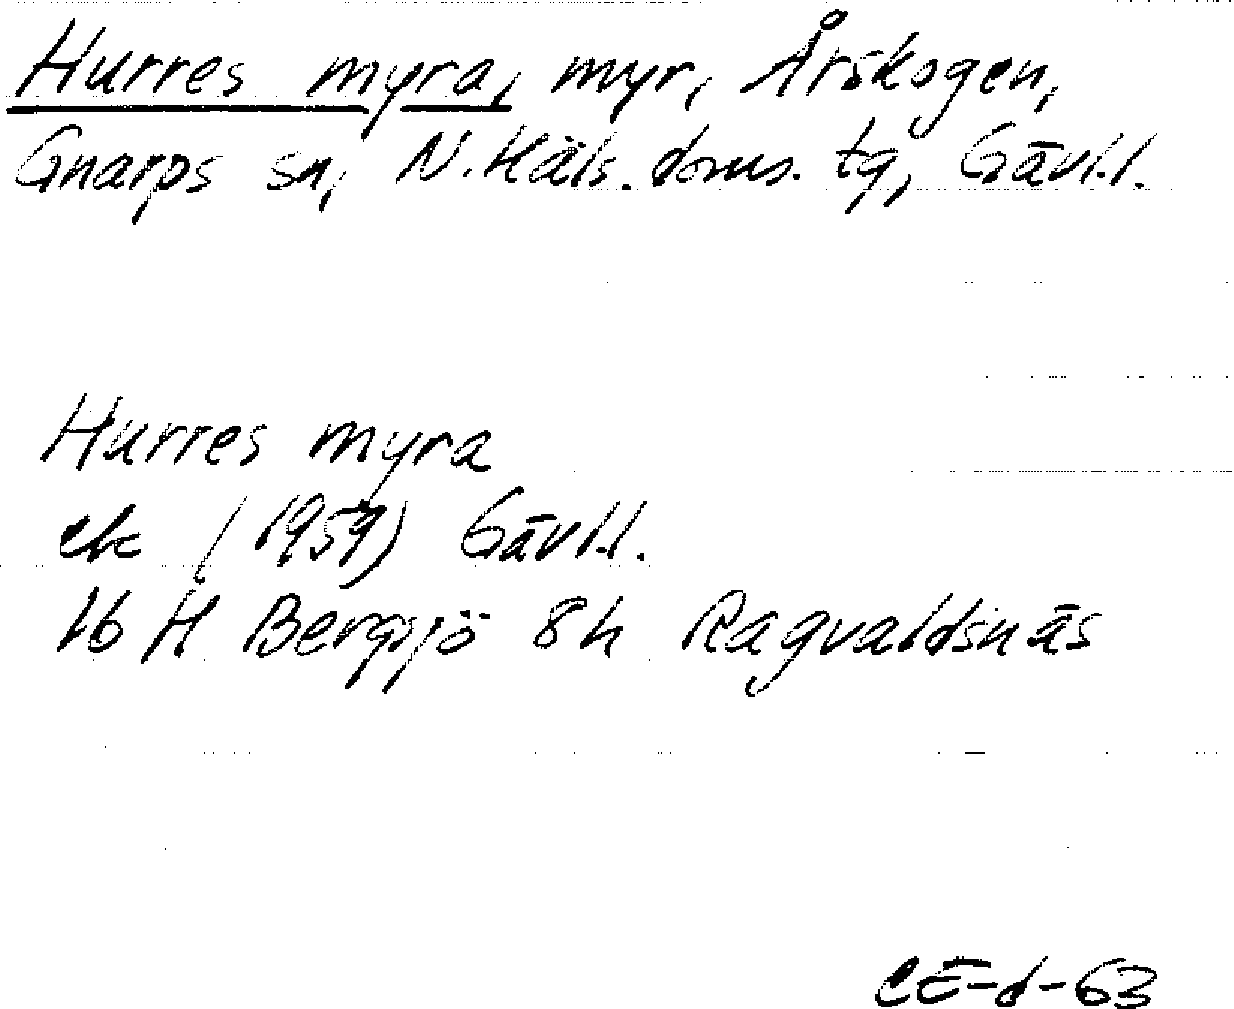 Hurres myra, myr, Årskogen,
Gnarps sn, N. Häls. doms. tg, Gävl.l.
Hurres myra
ek (1959) Gävl.l.
16 H Bergsjö 8h Ragvaldsnäs
CE-d-63